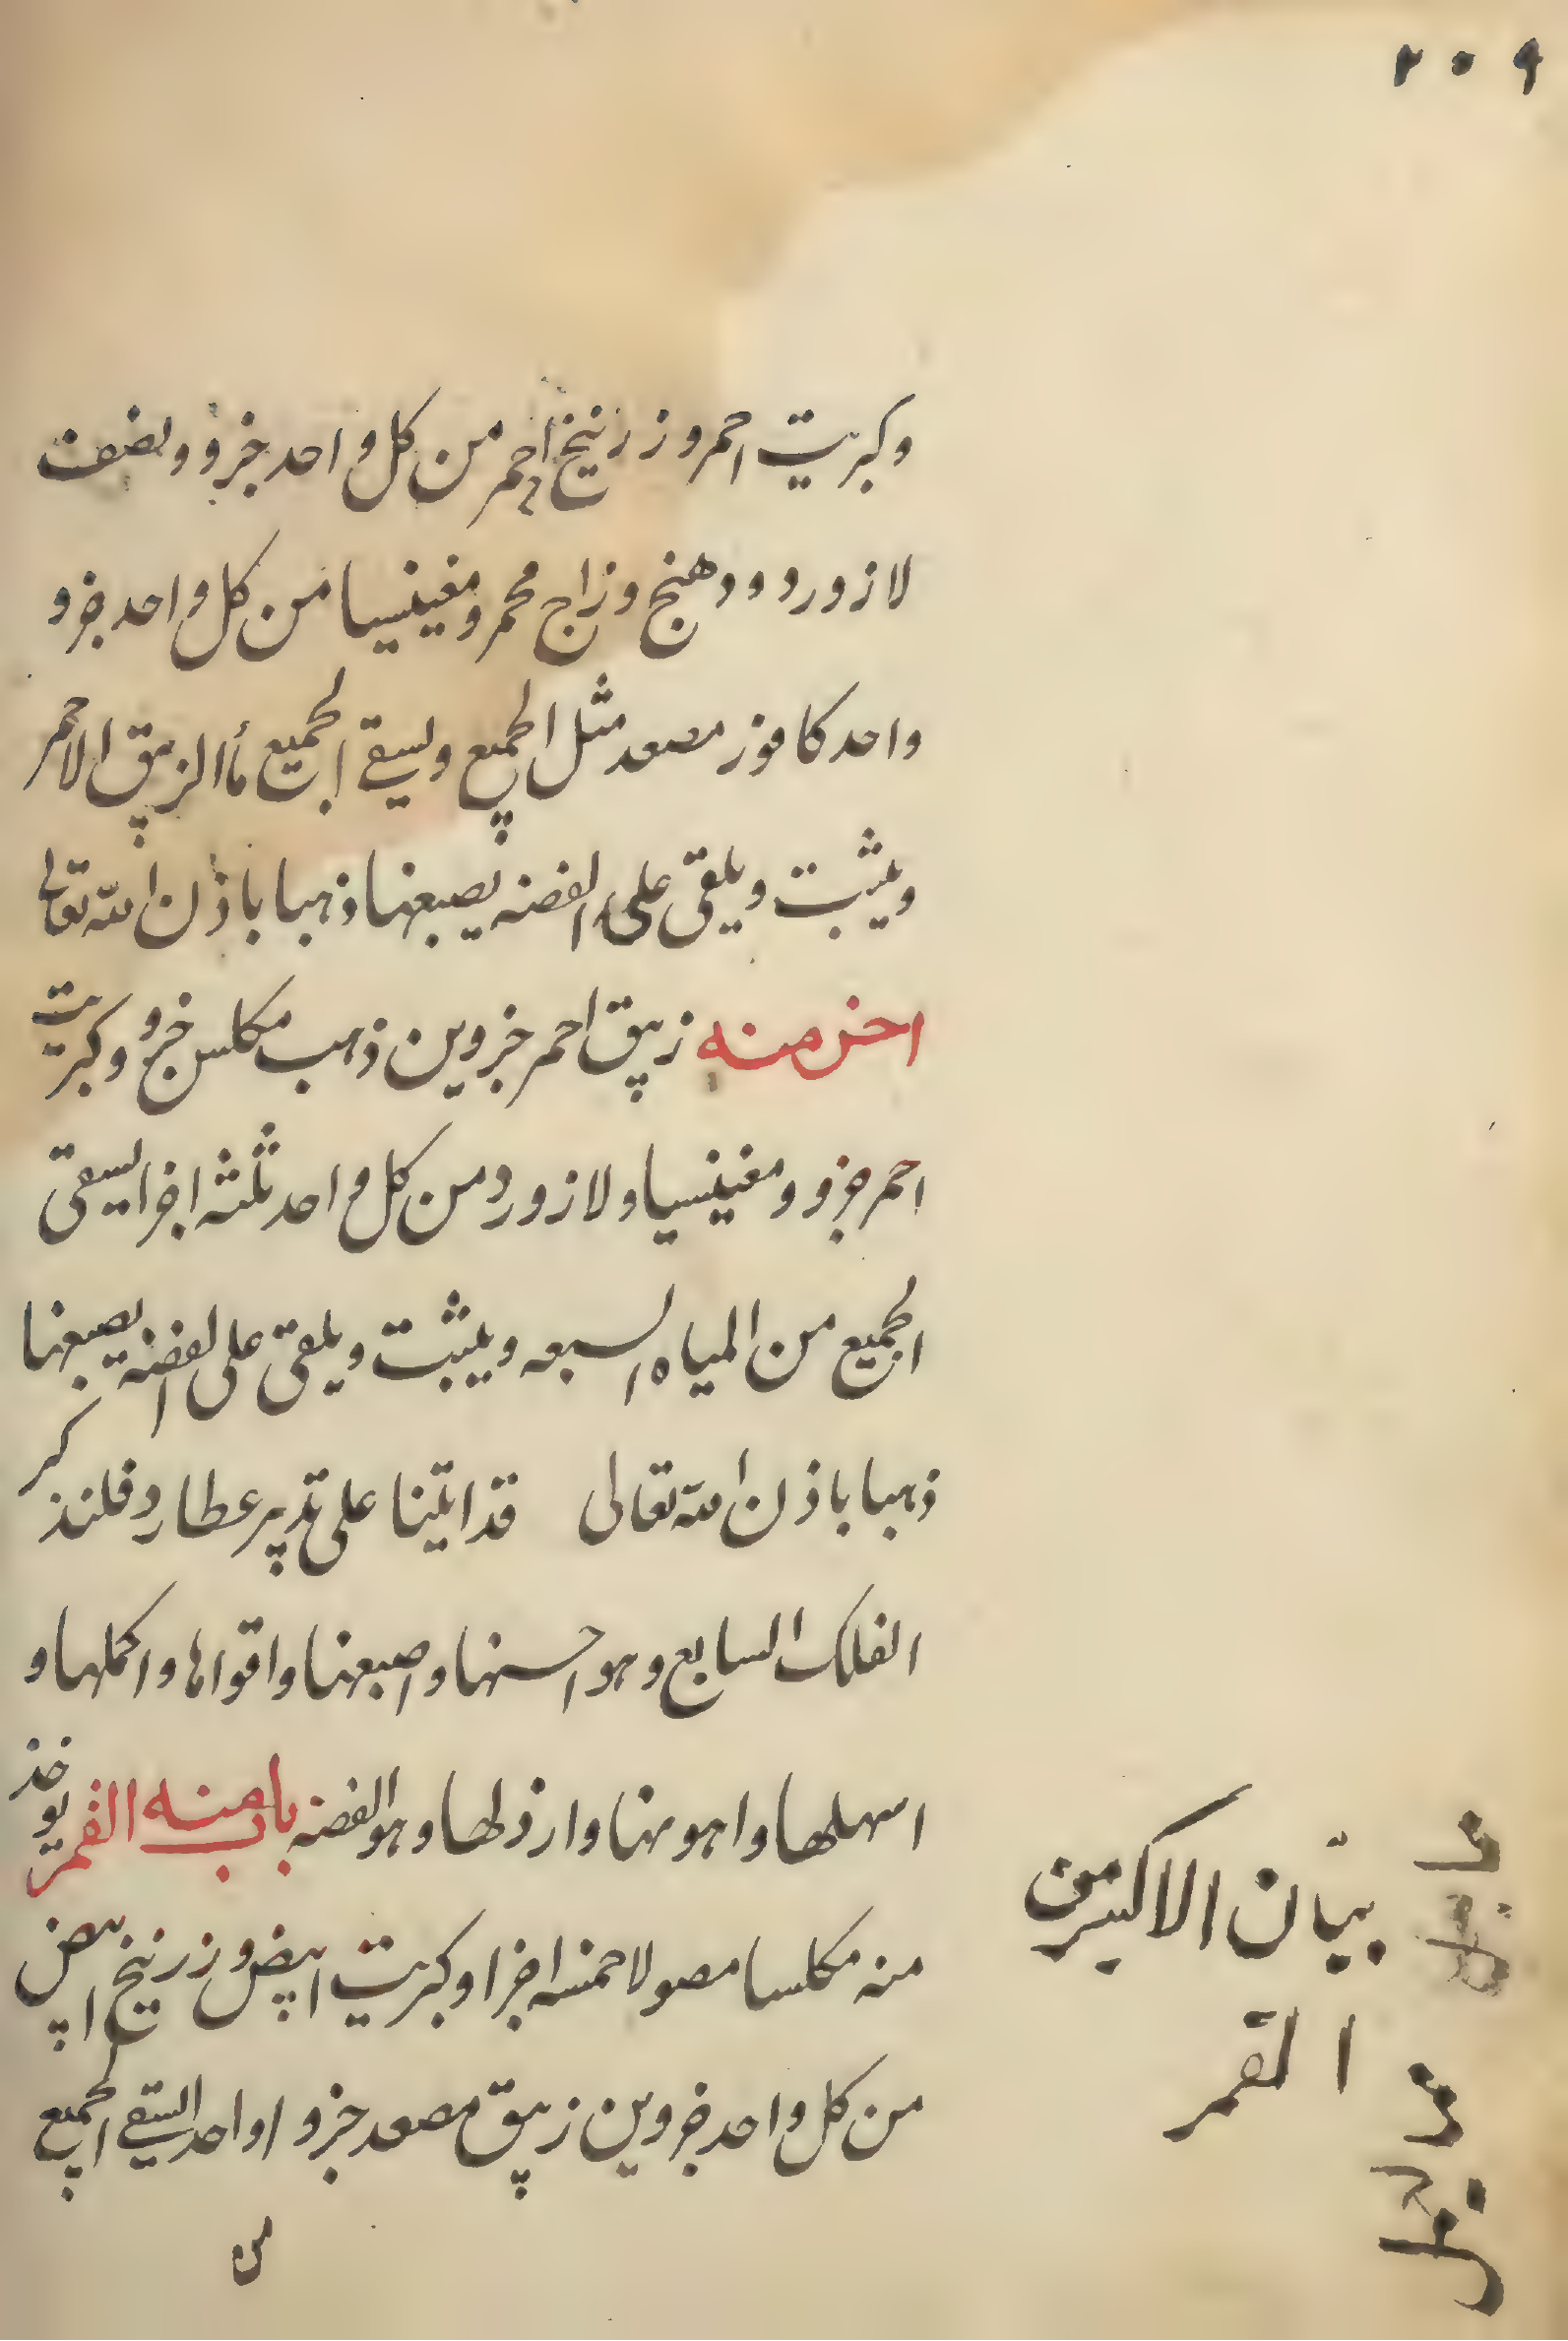 ٢٠٩
وكبريت احمر وزرنيخ احمر من كل واحد جزو ونصف
لازورد ودهنج وزاج محمر ومغنيسيا من كل واحد جزو
واحد كافور مصعد مثل الجميع ويسقے الجميع مأ الزيبق الاحمر
ويثبت ويلقى على الفضه يصبغها ذهبا باذن الله تعالى
اخر منه زيبق احمر جزوين ذهب مكلس جزو وكبريت
احمر جزو ومغنيسيا ولازورد من كل واحد ثلثه اجزا يسقى
الجميع من المياه السبعه ويثبت ويلقى على الفضة يصبغها
ذهبا باذن الله تعالى قد اتينا على تدبير عطارد فلنذكر
الفلك السابع وهو احسنها واصبغها واقواها واكملها و
اسهلها واهونها وارذلها وهو الفضه باب منه القمر يوخذ
منه مكلسا مصولا خمسه اجزا وكبريت ابيض وزرنيخ ابيض
من كل واحد جزوين زيبق مصعد جزو واحد يسقے الجميع
من
بيّان الاكسير من
القمر